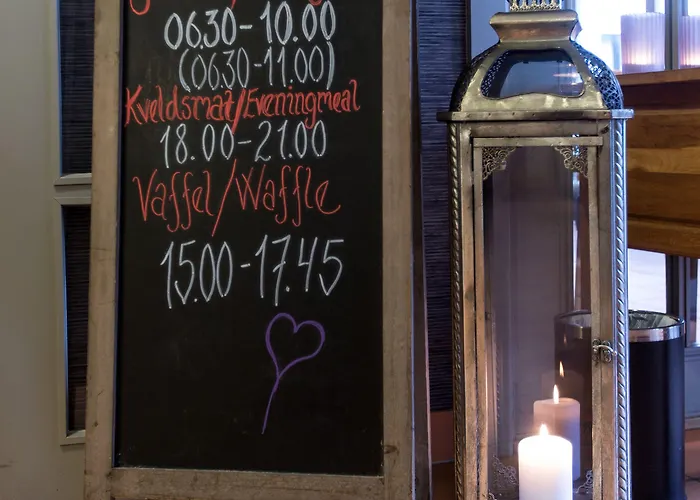 06.30-10.00
(06.30-11.00)
Kveldsmat/Eveningmeal
18.00-21.00
Vaffel/Waffle
15.00-17.45